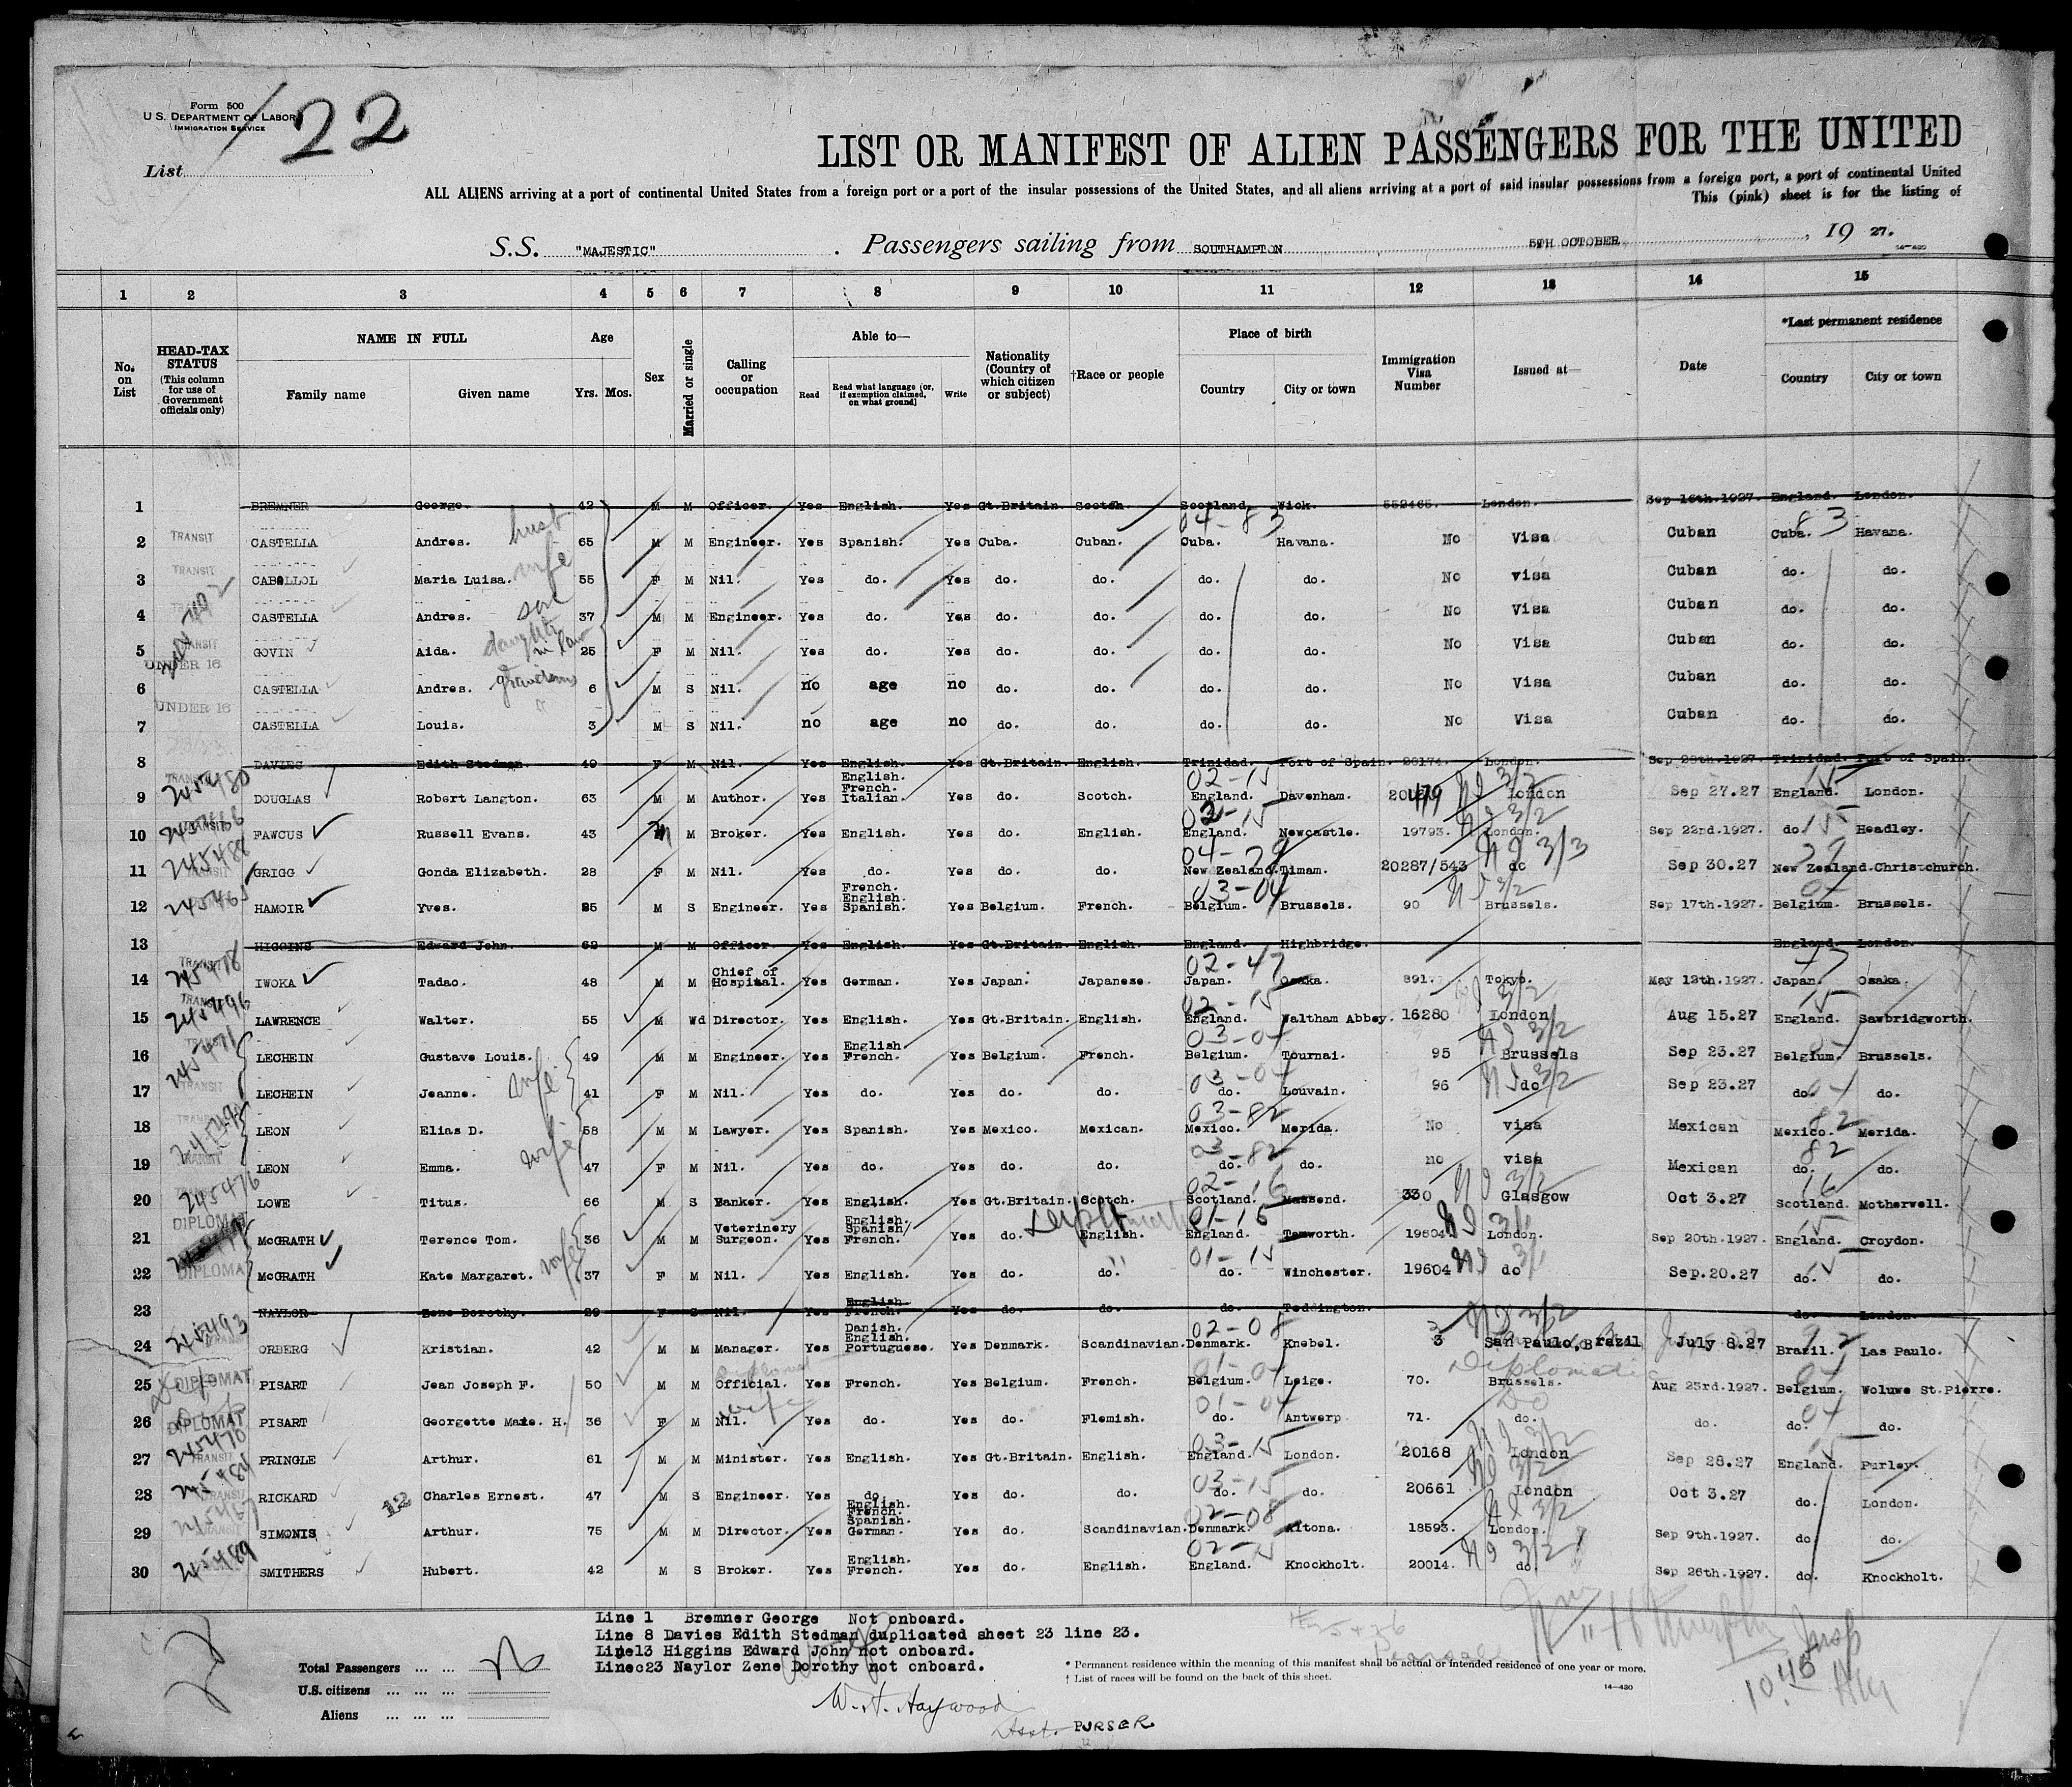 Form 500
U. S. DEPARTMENT OF LABOR
IMMIGRATION SERVICE
22
List
LIST OR MANIFEST OF ALIEN PASSENGERS FOR THE UNITED
ALL ALIENS arriving at a port of continental United States from a foreign port or a port of the insular possessions of the United States, and all aliens arriving at a port of said insular possessions from a foreign port, a port of continental United
This (pink) sheet is for the listing of
S.S. "MAJESTIC" . Passengers sailing from SOUTHAMPTON 5TH OCTOBER , 19 27.
14—430
1 2 3 4 5 6 7 8 9 10 11 12 13 14 15
No. on List
HEAD-TAX STATUS (This column for use of Government officials only)
NAME IN FULL Family name Given name
Age Yrs. Mos.
Sex
Married or single
Calling or occupation
Able to— Read Read what language (or, if exemption claimed, on what ground) Write
Nationality (Country of which citizen or subject)
†Race or people
Place of birth Country City or town
Immigration Visa Number
Issued at—
Date
*Last permanent residence Country City or town
1 BREMNER George. 42 M M Officer. Yes English. Yes Gt.Britain. Scotch Scotland. Wick. 552465. London. Sep 16th.1927. England. London.
2 TRANSIT CASTELLA Andres. husb 65 M M Engineer. Yes Spanish. Yes Cuba. Cuban. 04-83 Cuba. Havana. No Visa Cuban Cuba. 83 Havana.
3 TRANSIT CABALLOL Maria Luisa. wife 55 F M Nil. Yes do. Yes do. do. do. do. No visa Cuban do. do.
4 CASTELLA Andres. son 37 M M Engineer. Yes do. Yes do. do. do. do. No Visa Cuban do. do.
5 TRANSIT GOVIN Aida. daughter in law 25 F M Nil. Yes do. Yes do. do. do. do. No Visa Cuban do. do.
6 UNDER 16 CASTELLA Andres. grandsons 6 M S Nil. no age no do. do. do. do. No Visa Cuban do. do.
7 UNDER 16 CASTELLA Louis. 3 M S Nil. no age no do. do. do. do. No Visa Cuban do. do.
8 DAVIES Edith Stedman. 49 F M Nil. Yes English. Yes Gt.Britain. English. Trinidad. Port of Spain. 20174. London. Sep 28th.1927. Trinidad. Port of Spain.
9 245480 DOUGLAS Robert Langton. 63 M M Author. Yes English. French. Italian. Yes do. Scotch. 02-15 England. Davenham. NI 3/2 London Sep 27.27 England. 15 London.
10 FAWCUS Russell Evans. 43 M M Broker. Yes English. Yes do. English. 02-15 England. Newcastle. 19793. NI 3/2 London. Sep 22nd.1927. do 15 Headley.
11 245488 GRIGG Gonda Elizabeth. 28 F M Nil. Yes do. Yes do. do. 04-29 New Zealand. Timam. 20287/543 NI 3/3 do Sep 30.27 New Zealand. 29 Christchurch.
12 245465 HAMOIR Yves. 25 M S Engineer. Yes French. English. Spanish. Yes Belgium. French. 03-04 Belgium. Brussels. 90 NI 3/2 Brussels. Sep 17th.1927. Belgium. 04 Brussels.
13 HIGGINS Edward John. 62 M M Officer. Yes English. Yes Gt.Britain. English. England. Highbridge. England. London.
14 245478 IWOKA Tadao. 48 M M Chief of Hospital. Yes German. Yes Japan. Japanese. 02-47 Japan. Osaka. 891 Tokyo. May 12th.1927. Japan. 47 Osaka.
15 245496 LAWRENCE Walter. 55 M Wd Director. Yes English. Yes Gt.Britain. English. 02-15 England. Waltham Abbey. 16280 NI 3/2 London Aug 15.27 England. 15 Sawbridgworth.
16 245471 LECHEIN Gustave Louis. 49 M M Engineer. Yes English French. Yes Belgium. French. 03-04 Belgium. Tournai. 95 NI 3/2 Brussels Sep 23.27 Belgium. 04 Brussels.
17 TRANSIT LECHEIN Jeanne. wife 41 F M Nil. Yes do. Yes do. do. 03-04 do. Louvain. 96 NI 3/2 do Sep 23.27 do. 04 do.
18 LEON Elias D. 58 M M Lawyer. Yes Spanish. Yes Mexico. Mexican. 03-82 Mexico. Merida. No visa Mexican Mexico. 82 Merida.
19 TRANSIT LEON Emma. wife 47 F M Nil. Yes do. Yes do. do. 03-82 do. do. no visa Mexican do. 82 do.
20 245476 LOWE Titus. 66 M S Banker. Yes English. Yes Gt.Britain. Scotch. 02-16 Scotland. Mossend. 330 NI 3/2 Glasgow Oct 3.27 Scotland. 16 Motherwell.
21 DIPLOMAT McGRATH Terence Tom. 36 M M Veterinery Surgeon. Yes English. Spanish/ French. Yes do. English. 01-15 England. Tamworth. 19604 NI 3/1 London. Sep 20th.1927. England. 15 Croydon.
22 DIPLOMA McGRATH Kate Margaret. wife 37 F M Nil. Yes English. Yes do. do. 01-15 do. Winchester. 19604 NI 3/1 do Sep.20.27 do. 15 do.
23 NAYLOR Zene Dorothy. 29 F S Nil. Yes English French. Yes do. do. do. Teddington. do. London.
24 245493 ORBERG Kristian. 42 M M Manager. Yes Danish. English. Portuguese. Yes Denmark. Scandinavian. 02-08 Denmark. Knebel. 3 NI 3/2 San Paulo, Brazil July 8.27 Brazil. 92 Las Paulo.
25 DIPLOMAT PISART Jean Joseph F. 50 M M Official. Yes French. Yes Belgium. French. 01-04 Belgium. Leige. 70. Diplomatic Brussels. Aug 23rd.1927. Belgium. 04 Woluwe St.Pierre.
26 DIPLOMAT PISART Georgette Marie. H. 36 F M wife Nil. Yes do. Yes do. Flemish. 01-04 do. Antwerp 71. Do do. do. do. 04 do.
27 245470 TRANSIT PRINGLE Arthur. 61 M M Minister. Yes English. Yes Gt.Britain. English. 03-15 England. London. 20168 NI 3/2 London Sep 28.27 England. 15 Purley.
28 245484 RICKARD 12 Charles Ernest. 47 M S Engineer. Yes do. Yes do. do. 02-15 do. do. 20661 NI 3/2 London Oct 3.27 do. London.
29 245467 SIMONIS Arthur. 75 M M Director. Yes English. French. Spanish. German. Yes do. Scandinavian. 02-08 Denmark. Altona. 18593. NI 3/2 London. Sep 9th.1927. do do.
30 245489 SMITHERS Hubert. 42 M S Broker. Yes English. French. Yes do. English. 02-15 England. Knockholt. 20014. NI 3/2 do. Sep 26th.1927. do. Knockholt.
Line 1 Bremner George Not onboard.
Line 8 Davies Edith Stedman duplicated sheet 23 line 23.
Line13 Higgins Edward John not onboard.
Line 23 Naylor Zene Dorothy not onboard.
Total Passengers ... ...
U.S. citizens ... ... ...
Aliens ... ... ...
* Permanent residence within the meaning of this manifest shall be actual or intended residence of one year or more.
† List of races will be found on the back of this sheet.
14—430
W. H. Haywood
Asst. PURSER
Insp
10.40 AM